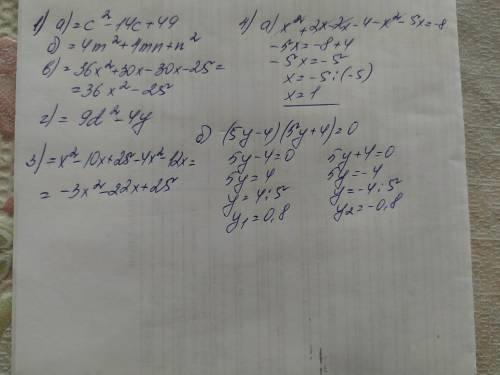 1) а) = c² - 14c + 49
б) = 4m² + 4mn + n²
в) = 36x² + 30x - 30x - 25 =
= 36x² - 25
г) = 9d² - 4y
3) = x² - 10x + 25 - 4x² - 12x =
= -3x² - 22x + 25
4) а) x² + 2x - 2x - 4 - x² - 5x = -8
-5x = -8 + 4
-5x = -5
x = -5 : (-5)
x = 1
б) (5y - 4)(5y + 4) = 0
5y - 4 = 0 5y + 4 = 0
5y = 4 5y = -4
y = 4 : 5 y = -4 : 5
y₁ = 0,8 y₂ = -0,8